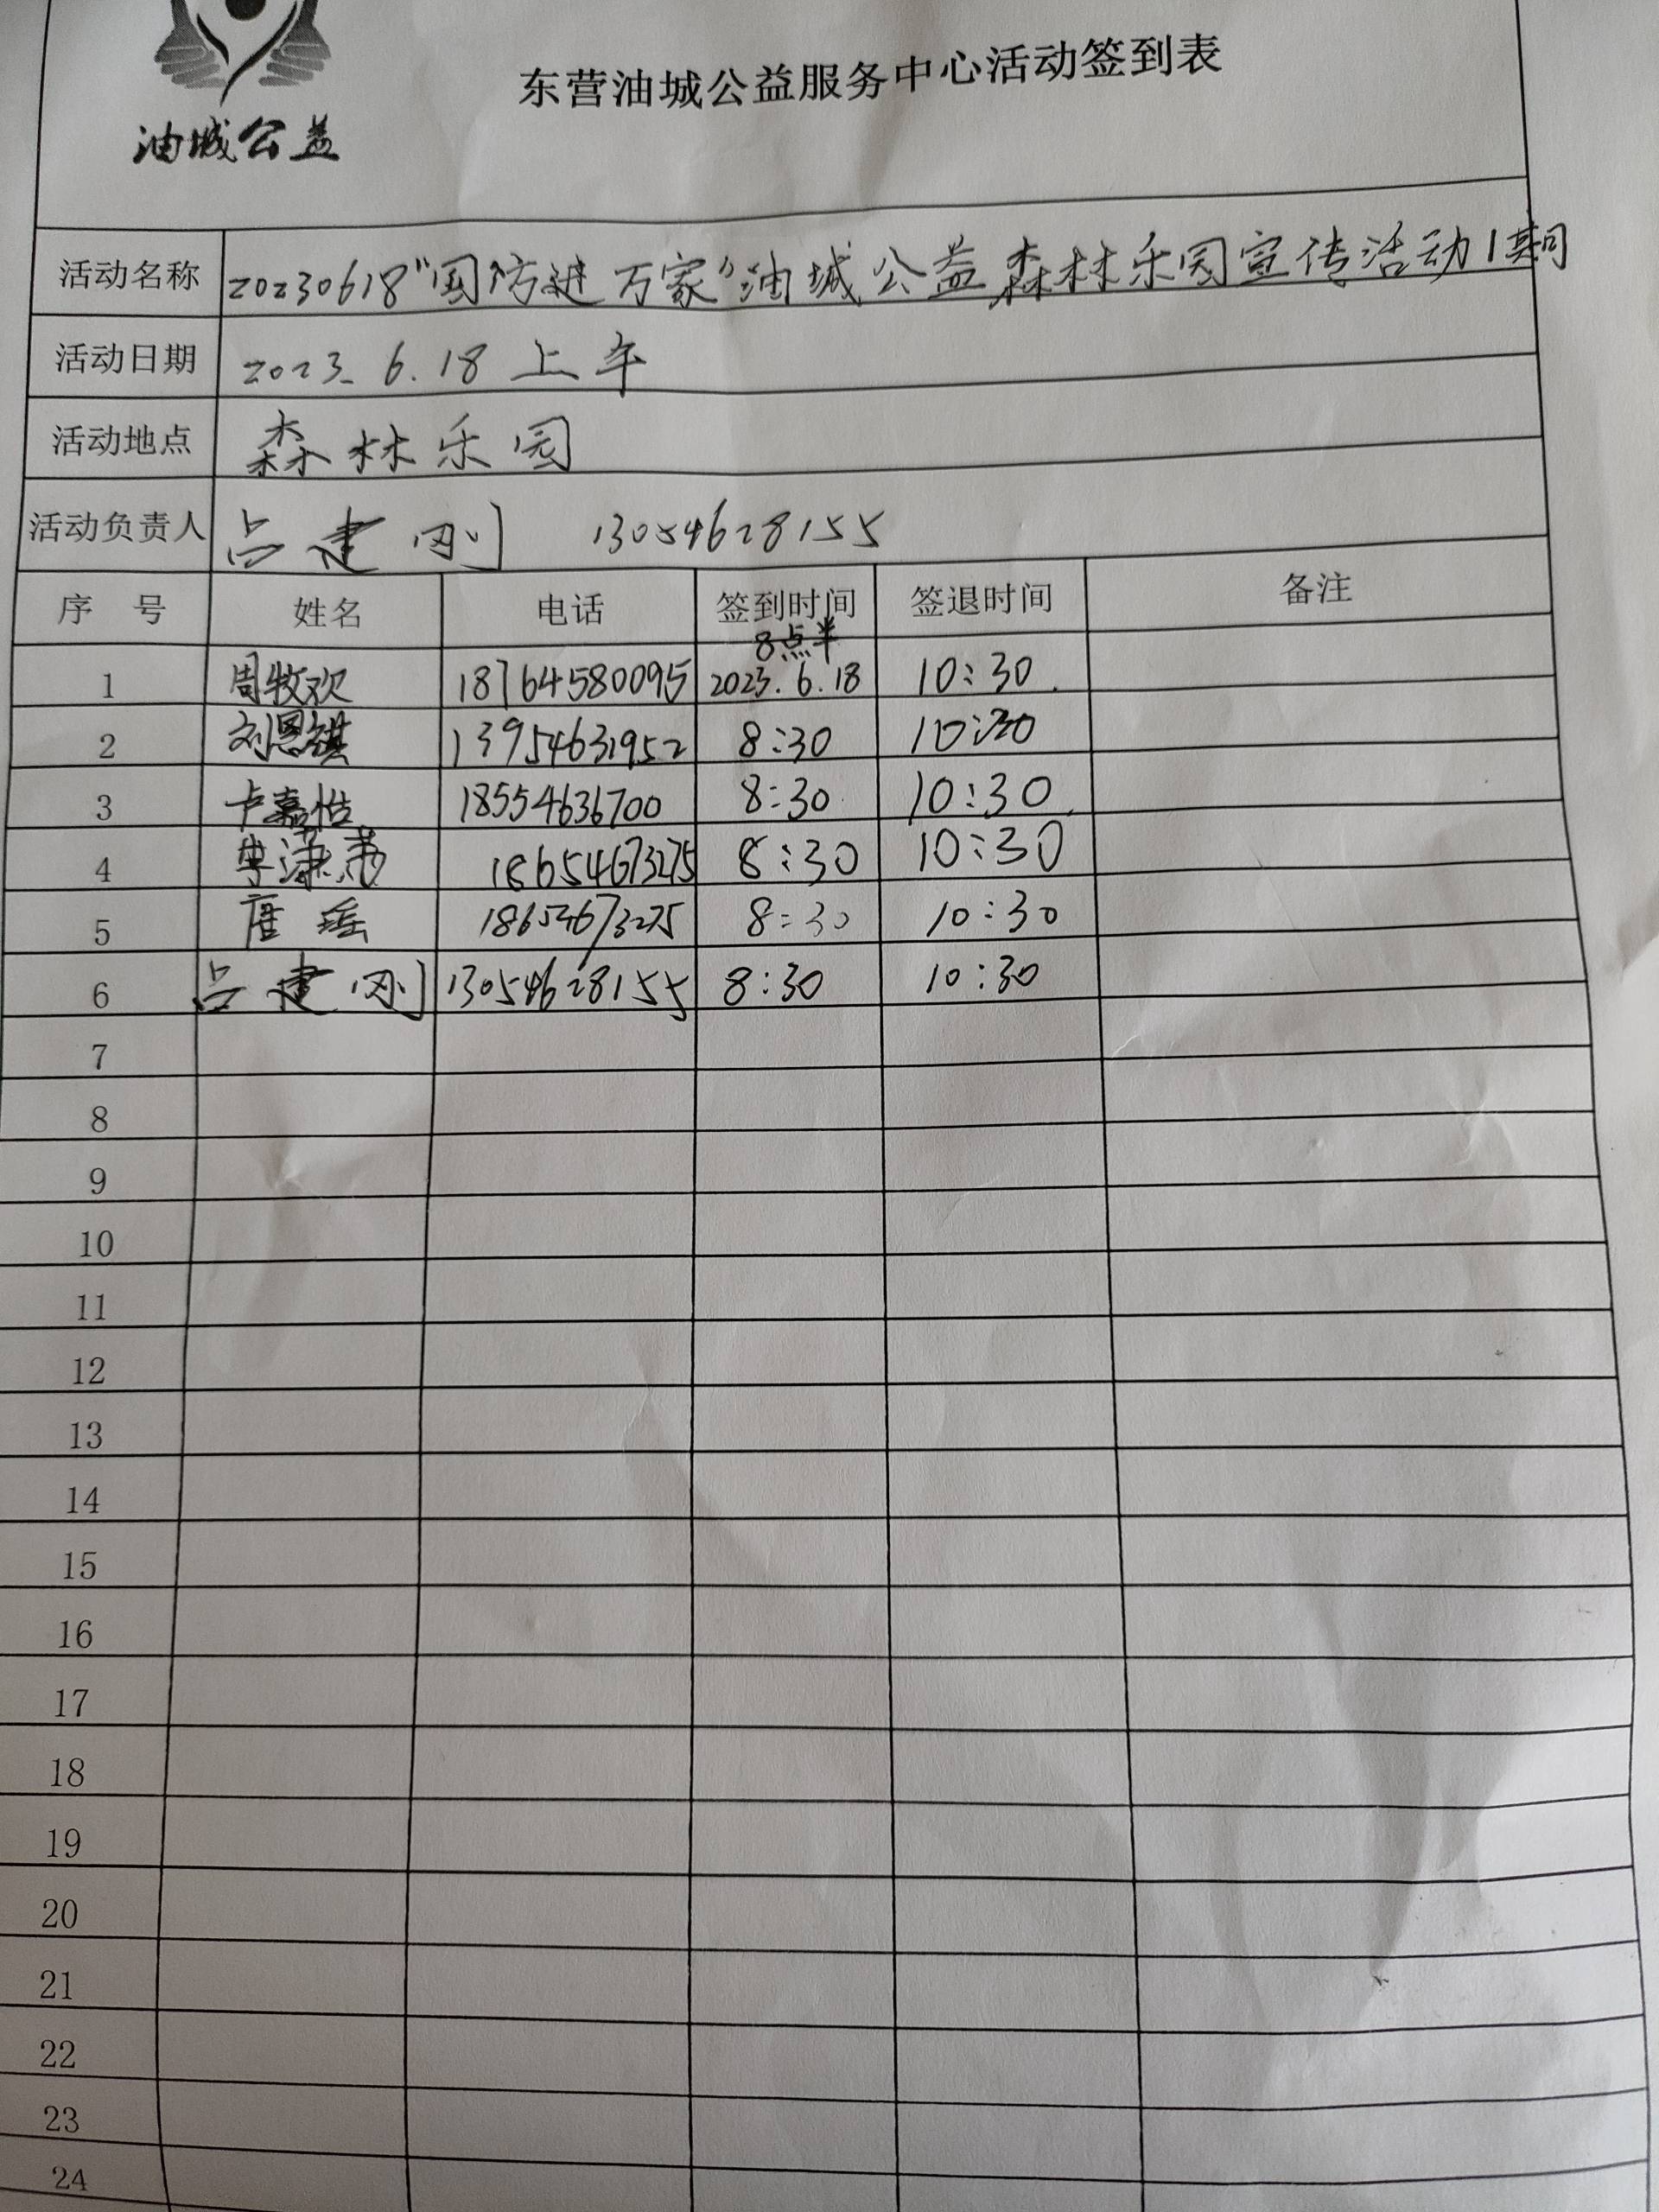 油城公益
东营油城公益服务中心活动签到表
活动名称 20230618"国防进万家"油城公益森林乐园宣传活动1期
活动日期 2023.6.18 上午
活动地点 森林乐园
活动负责人 吕建刚 13054628155
序 号 姓名 电话 签到时间 签退时间 备注
8点半
1 周牧欢 18764580095 2023.6.18 10:30
2 刘恩祺 13954631952 8:30 10:30
3 卢嘉怡 18554636700 8:30 10:30
4 18654673275 8:30 10:30
5 唐瑶 18654673275 8:30 10:30
6 吕建刚 13054628155 8:30 10:30
7
8
9
10
11
12
13
14
15
16
17
18
19
20
21
22
23
24